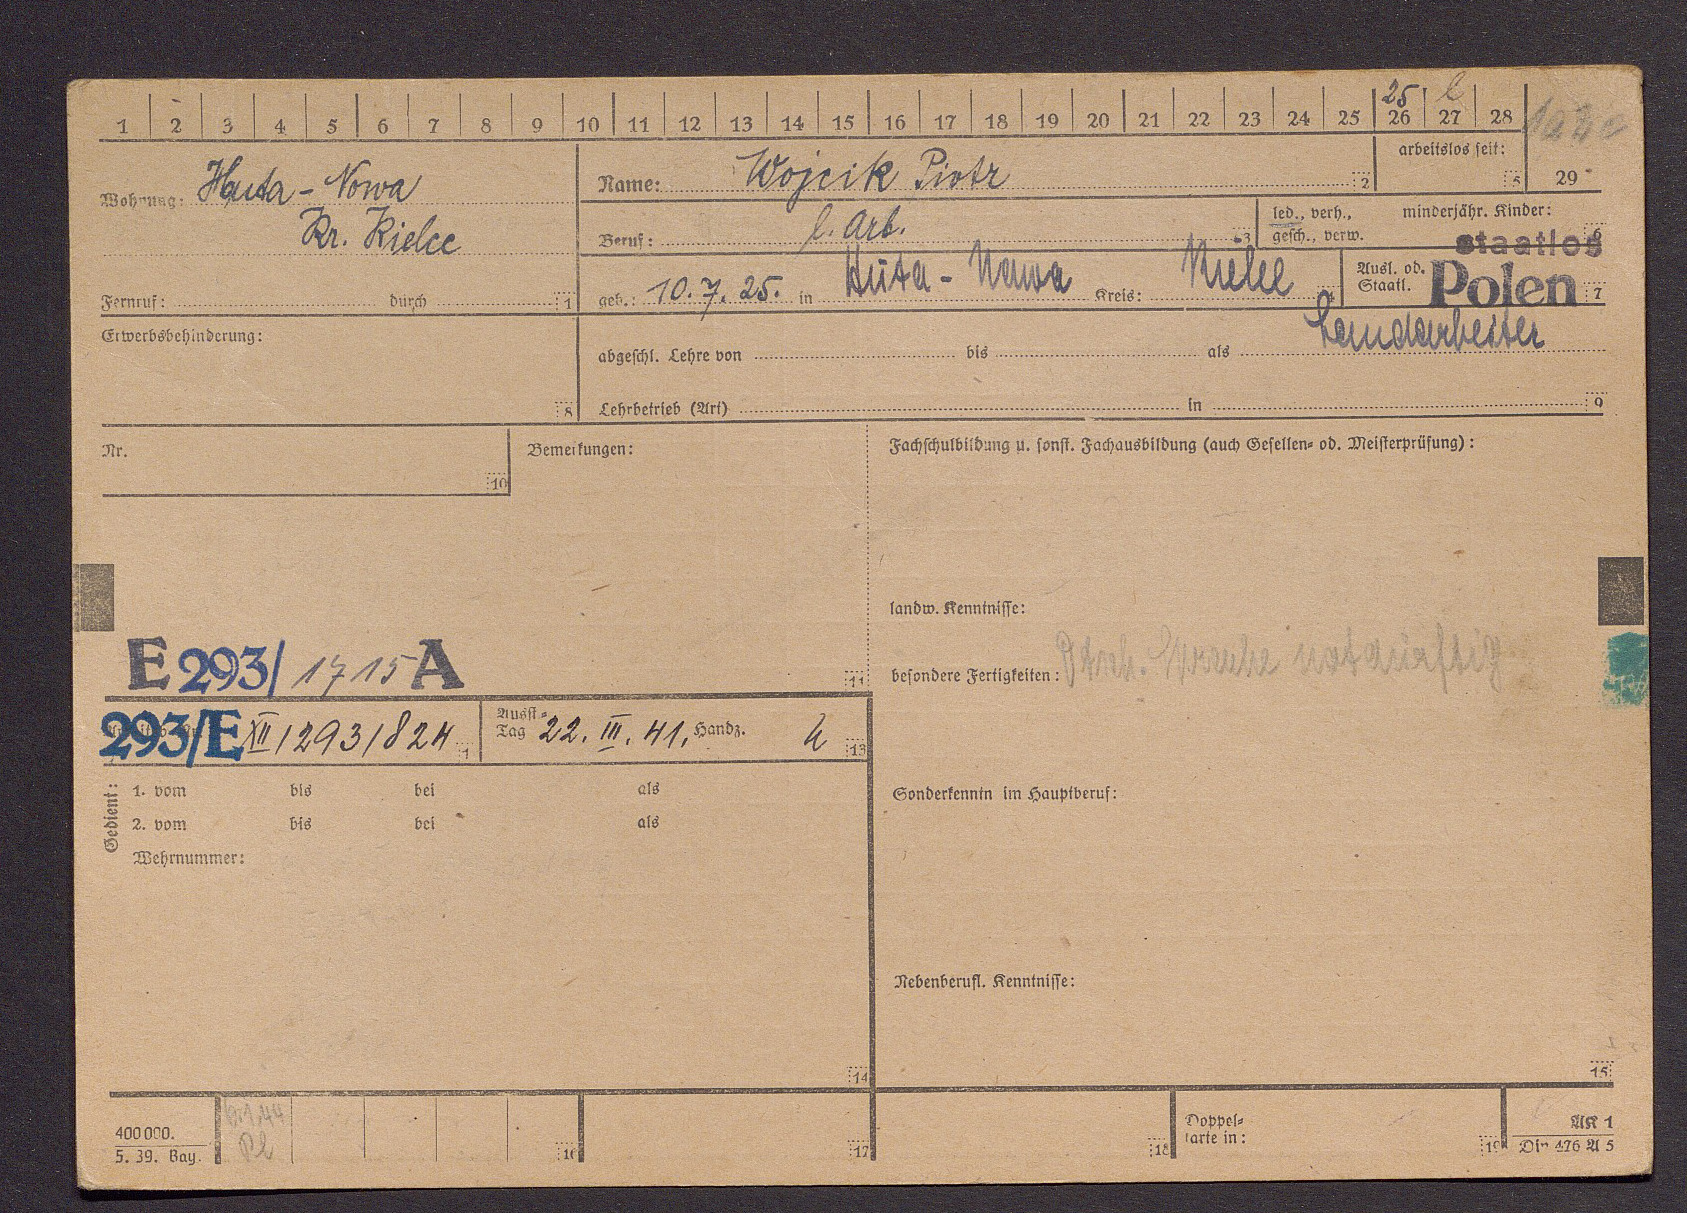 1 2 3 4 5 6 7 8 9 10 11 12 13 14 15 16 17 18 19 20 21 22 23 24 25 26 27 28
25 l
Wohnung: Huta-Nowa
Kr. Kielce
Fernruf: durch 1
Name: Wojcik Piotr 2
arbeitslos seit: 5
29
Beruf: l. Arb. 3
led., verh., gesch., verw.
minderjähr. Kinder: 6
geb.: 10.7.25. in Huta-Nowa Kreis: Kielce 4
Ausl. od. Staatl. staatlos Polen 7
Erwerbsbehinderung: 8
abgeschl. Lehre von bis als Landarbeiter
Lehrbetrieb (Art) in 9
Nr. 10
Bemerkungen:
Fachschulbildung u. sonst. Fachausbildung (auch Gesellen- od. Meisterprüfung):
landw. Kenntnisse:
besondere Fertigkeiten: Dtsch. Sprache notdürftig
E 293/1715 A 11
293/E XII/293/824
Ausst.-Tag 22. III. 41. Handz. 13
Gedient: 1. vom bis bei als
2. vom bis bei als
Wehrnummer:
14
Sonderkenntn im Hauptberuf:
Nebenberufl. Kenntnisse:
15
400000.
5. 39. Bay.
16 17 18
Doppel-
karte in: 19
AK 1
Din 476 A 5